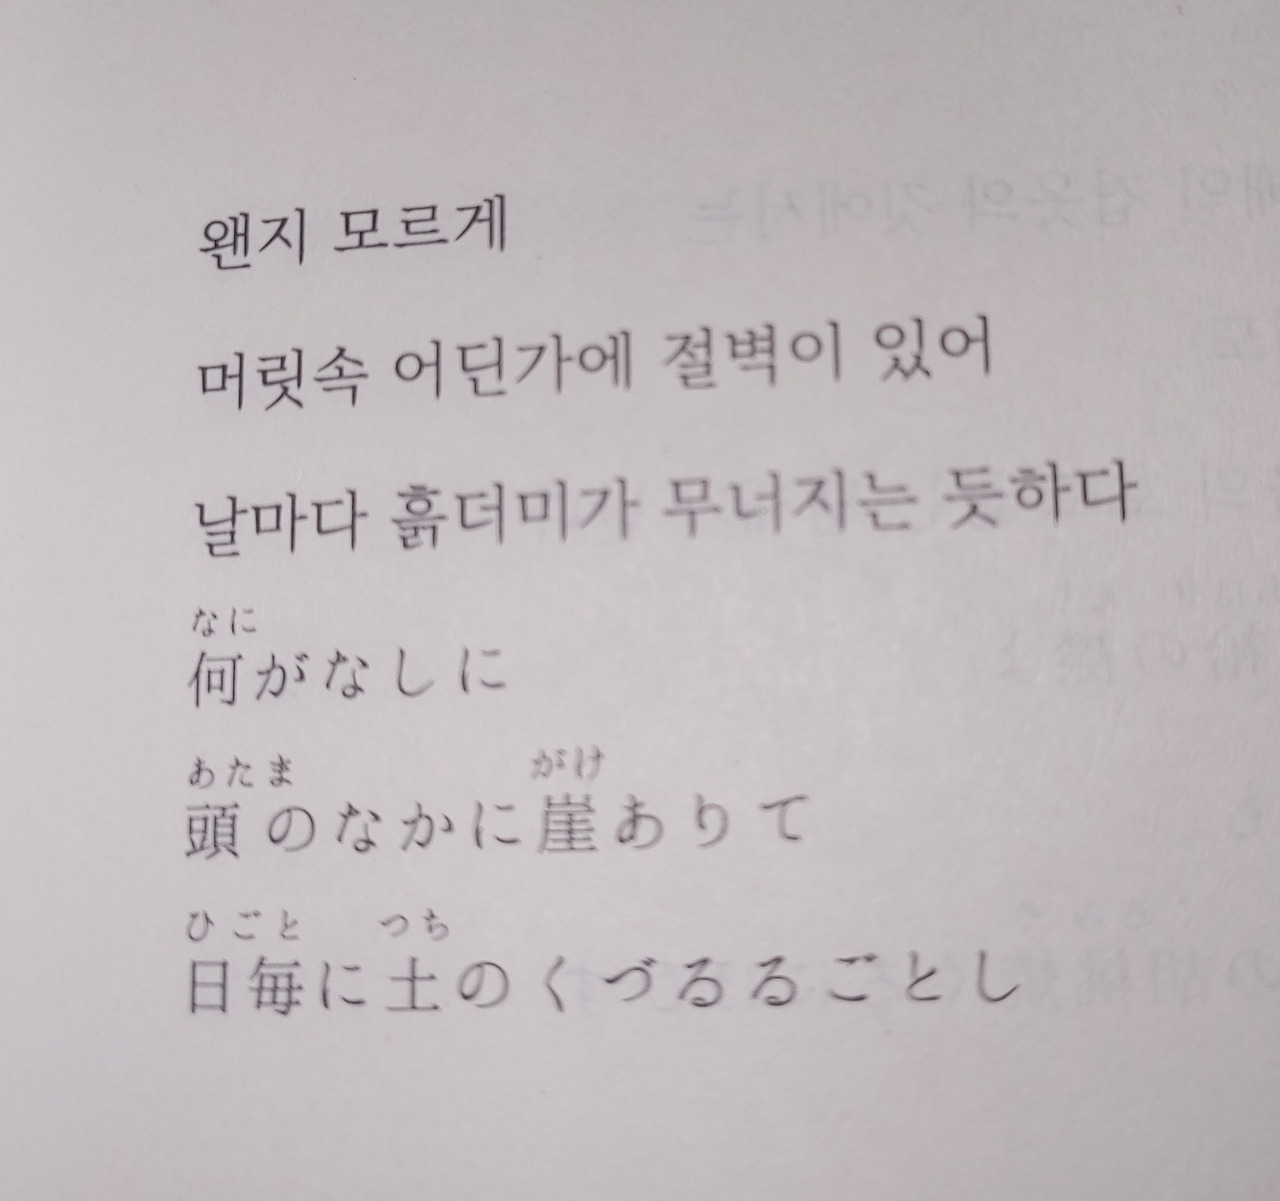 왠지 모르게
머릿속 어딘가에 절벽이 있어
날마다 흙더미가 무너지는 듯하다
なに
何がなしに
あたま がけ
頭のなかに崖ありて
ひごと つち
日毎に土のくづるるごとし